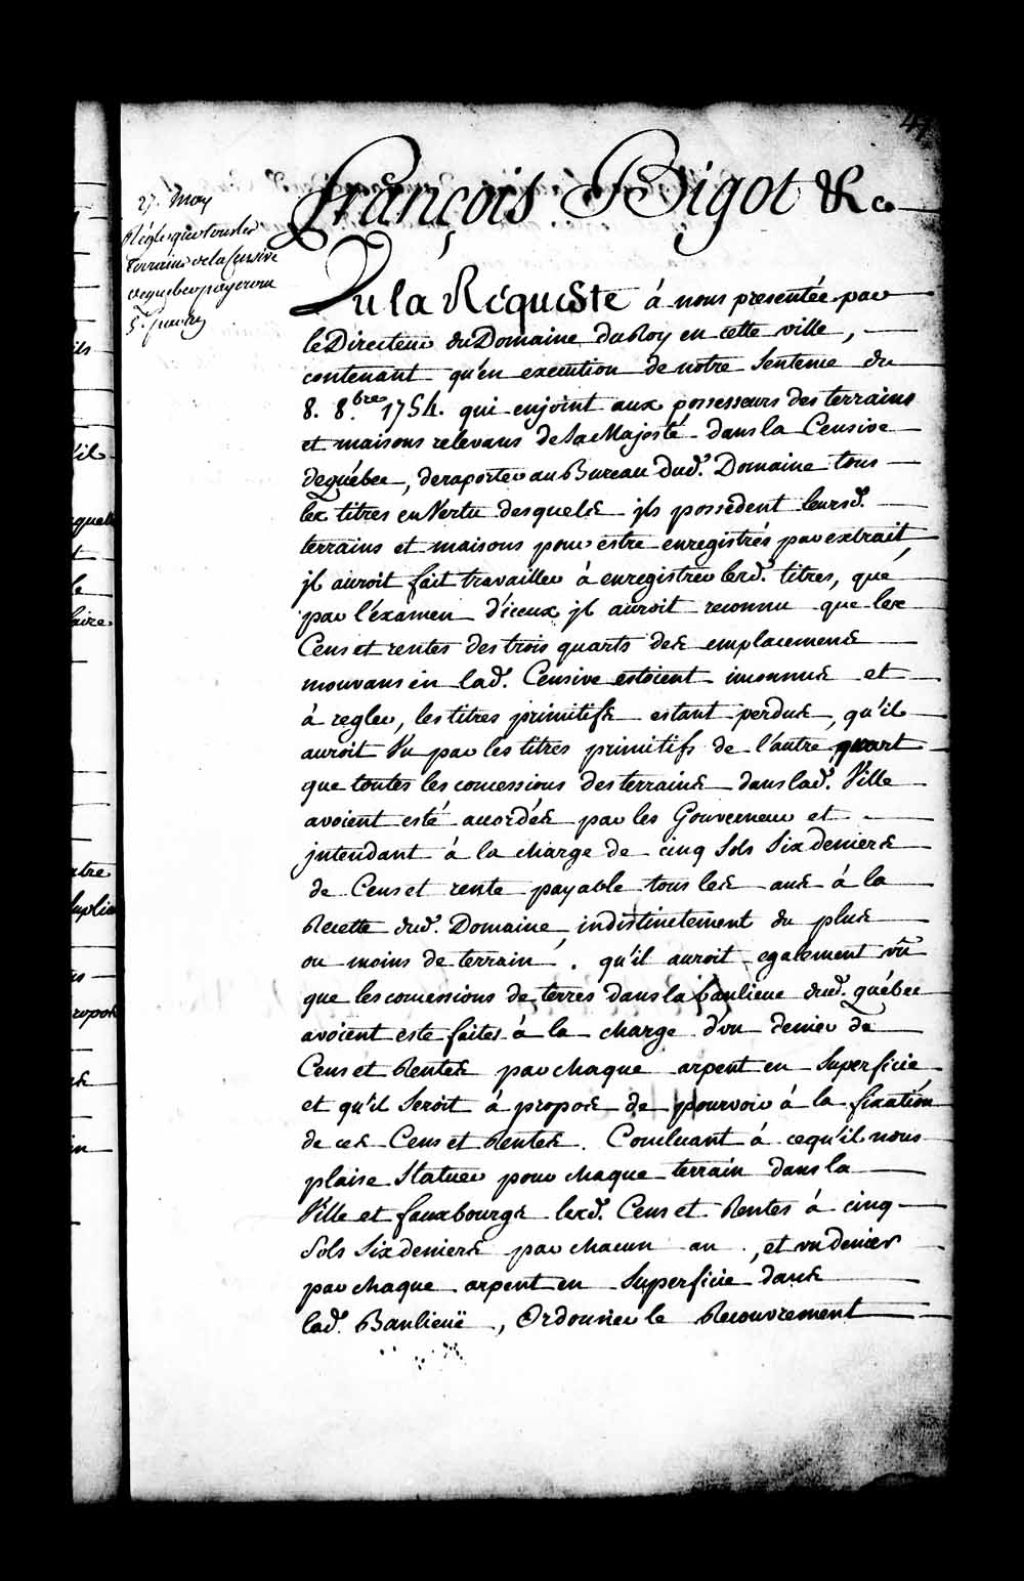 27. May
Règle que tous les
terrains de la Censive
de quebec payeront
François Bigot &c.
Vu la Requeste à nous presentée par
le Directeur du Domaine du Roy en cette ville,
contenant qu'en execution de notre Sentence du
8. 8.bre 1754. qui enjoint aux possesseurs des terrains
et maisons relevans de Sa Majesté dans la Censive
de québec, de raporter au Bureau dud. Domaine tous
les titres en Vertu desquels jls possèdent leursd.
terrains et maisons pour estre enregistrés par extrait,
jl auroit fait travailler à enregistrer lesd. titres, que
par l'éxamen d'iceux jl auroit reconnu que les
Cens et rentes des trois quarts des emplacemens
mouvans en lad. Censive estoient inconnus et
à regler, les titres primitifs estant perdus, qu'il
auroit Vu par les titres primitifs de l'autre quart
que toutes les concessions des terrains dans lad. Ville
avoient esté accordés par les Gouverneur et
jntendant à la charge de cinq Sols Six deniers
de Cens et rente payable tous les ans à la
Recette dud. Domaine, indistinctement du plus
ou moins de terrain. qu'il auroit egalement vû
que les concessions de terres dans la banlieue dud. québec
avoient esté faites à la charge d'un denier de
Cens et Rentes par chaque arpent en Superficie
et qu'il Seroit à propos de pourvoir à la fixation
de ces Cens et Rentes. Concluant à cequ'il nous
plaise Statuer pour chaque terrain dans la
Ville et fauxbourgs lesd. Cens et Rentes à cinq
Sols Six deniers par chacun an, et un denier
par chaque arpent en Superficie dans
lad. Banlieuë, Ordonner le Recouvrement